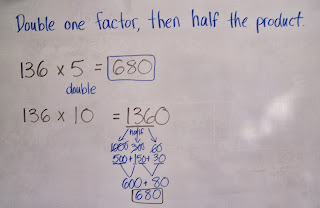 Double one factor, then half the product.
136 x 5 = 680
double
136 x 10 = 1360
half
1000 300 60
500+150+30
600+80
680